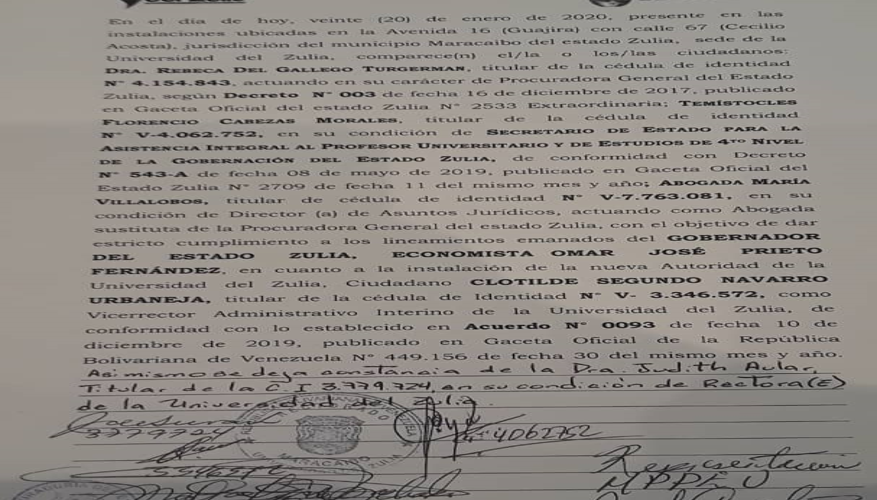 En el día de hoy, veinte (20) de enero de 2020, presente en las
instalaciones ubicadas en la Avenida 16 (Guajira) con calle 67 (Cecilio
Acosta), jurisdicción del municipio Maracaibo del estado Zulia, sede de la
Universidad del Zulia, comparece(n) el/la o los/las ciudadanos:
DRA. REBECA DEL GALLEGO TURGERMAN, titular de la cédula de identidad
N° 4.154.843, actuando en su carácter de Procuradora General del Estado
Zulia, según Decreto N° 003 de fecha 16 de diciembre de 2017, publicado
en Gaceta Oficial del estado Zulia N° 2533 Extraordinaria; TEMÍSTOCLES
FLORENCIO CABEZAS MORALES, titular de la cédula de identidad
N° V-4.062.752, en su condición de SECRETARIO DE ESTADO PARA LA
ASISTENCIA INTEGRAL AL PROFESOR UNIVERSITARIO Y DE ESTUDIOS DE 4TO NIVEL
DE LA GOBERNACIÓN DEL ESTADO ZULIA, de conformidad con Decreto
N° 543-A de fecha 08 de mayo de 2019, publicado en Gaceta Oficial del
Estado Zulia N° 2709 de fecha 11 del mismo mes y año; ABOGADA MARÍA
VILLALOBOS, titular de cédula de identidad N° V-7.763.081, en su
condición de Director (a) de Asuntos Jurídicos, actuando como Abogada
sustituta de la Procuradora General del estado Zulia, con el objetivo de dar
estricto cumplimiento a los lineamientos emanados del GOBERNADOR
DEL ESTADO ZULIA, ECONOMISTA OMAR JOSÉ PRIETO
FERNÁNDEZ, en cuanto a la instalación de la nueva Autoridad de la
Universidad del Zulia, Ciudadano CLOTILDE SEGUNDO NAVARRO
URBANEJA, titular de la cédula de Identidad N° V- 3.346.572, como
Vicerrector Administrativo Interino de la Universidad del Zulia, de
conformidad con lo establecido en Acuerdo N° 0093 de fecha 10 de
diciembre de 2019, publicado en Gaceta Oficial de la República
Bolivariana de Venezuela N° 449.156 de fecha 30 del mismo mes y año.
Asimismo se deja constancia de la Dra. Judith Aular,
Titular de la C.I 3.779.724, en su condición de Rectora(E)
de la Universidad del Zulia.
3779724
4062752
3346572
Representación
MPPEU